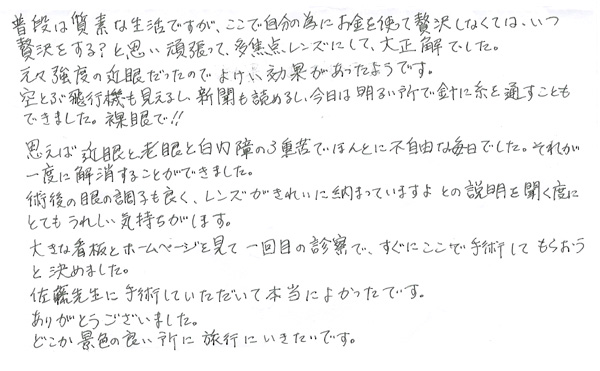 普段は質素な生活ですが、ここで自分の為にお金を使って贅沢しなくては、いつ
贅沢をする?と思い頑張って、多焦点レンズにして、大正解でした。
元々強度の近眼だったのでよけい効果があったようです。
空とぶ飛行機も見えるし、新聞も読めるし、今日は明るい所で針に糸を通すことも
できました。裸眼で!!
思えば近眼と老眼と白内障の3重苦でほんとに不自由な毎日でした。それが
一度に解消することができました。
術後の眼の調子も良く、レンズがきれいに納まっていますよとの説明を聞く度に
とてもうれしい気持ちがします。
大きな看板とホームページを見て一回目の診察で、すぐにここで手術してもらおう
と決めました。
佐藤先生に手術していただいて本当によかったです。
ありがとうございました。
どこか景色の良い所に旅行にいきたいです。